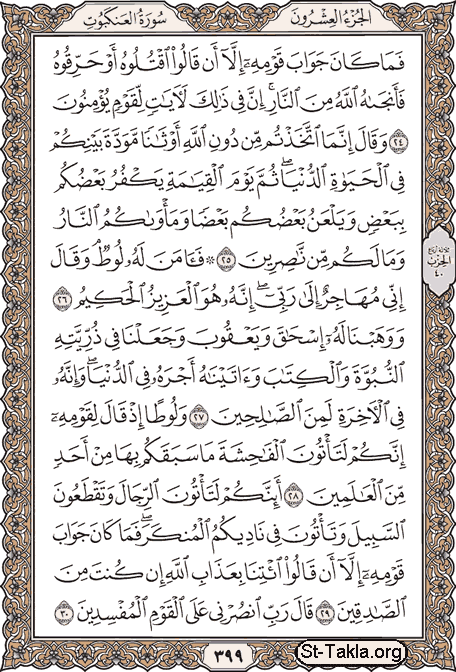 الجزء العشرون
سورة العنكبوت
فَمَا كَانَ جَوَابَ قَوْمِهِۦٓ إِلَّآ أَن قَالُوا۟ ٱقْتُلُوهُ أَوْ حَرِّقُوهُ
فَأَنجَىٰهُ ٱللَّهُ مِنَ ٱلنَّارِ ۚ إِنَّ فِى ذَٰلِكَ لَءَايَٰتٍ لِّقَوْمٍ يُؤْمِنُونَ
٢٤ وَقَالَ إِنَّمَا ٱتَّخَذْتُم مِّن دُونِ ٱللَّهِ أَوْثَٰنًا مَّوَدَّةَ بَيْنِكُمْ
فِى ٱلْحَيَوٰةِ ٱلدُّنْيَا ۖ ثُمَّ يَوْمَ ٱلْقِيَٰمَةِ يَكْفُرُ بَعْضُكُم
بِبَعْضٍ وَيَلْعَنُ بَعْضُكُم بَعْضًا وَمَأْوَىٰكُمُ ٱلنَّارُ
وَمَا لَكُم مِّن نَّٰصِرِينَ ٢٥ ۞ فَـَٔامَنَ لَهُۥ لُوطٌ ۘ وَقَالَ
إِنِّى مُهَاجِرٌ إِلَىٰ رَبِّىٓ ۖ إِنَّهُۥ هُوَ ٱلْعَزِيزُ ٱلْحَكِيمُ ٢٦
وَوَهَبْنَا لَهُۥٓ إِسْحَٰقَ وَيَعْقُوبَ وَجَعَلْنَا فِى ذُرِّيَّتِهِ
ٱلنُّبُوَّةَ وَٱلْكِتَٰبَ وَءَاتَيْنَٰهُ أَجْرَهُۥ فِى ٱلدُّنْيَا ۖ وَإِنَّهُۥ
فِى ٱلْءَاخِرَةِ لَمِنَ ٱلصَّٰلِحِينَ ٢٧ وَلُوطًا إِذْ قَالَ لِقَوْمِهِۦٓ
إِنَّكُمْ لَتَأْتُونَ ٱلْفَٰحِشَةَ مَا سَبَقَكُم بِهَا مِنْ أَحَدٍ
مِّنَ ٱلْعَٰلَمِينَ ٢٨ أَئِنَّكُمْ لَتَأْتُونَ ٱلرِّجَالَ وَتَقْطَعُونَ
ٱلسَّبِيلَ وَتَأْتُونَ فِى نَادِيكُمُ ٱلْمُنكَرَ ۖ فَمَا كَانَ جَوَابَ
قَوْمِهِۦٓ إِلَّآ أَن قَالُوا۟ ٱئْتِنَا بِعَذَابِ ٱللَّهِ إِن كُنتَ مِنَ
ٱلصَّٰدِقِينَ ٢٩ قَالَ رَبِّ ٱنصُرْنِى عَلَى ٱلْقَوْمِ ٱلْمُفْسِدِينَ ٣٠
الحزب
٤٠
٣٩٩
St-Takla.org